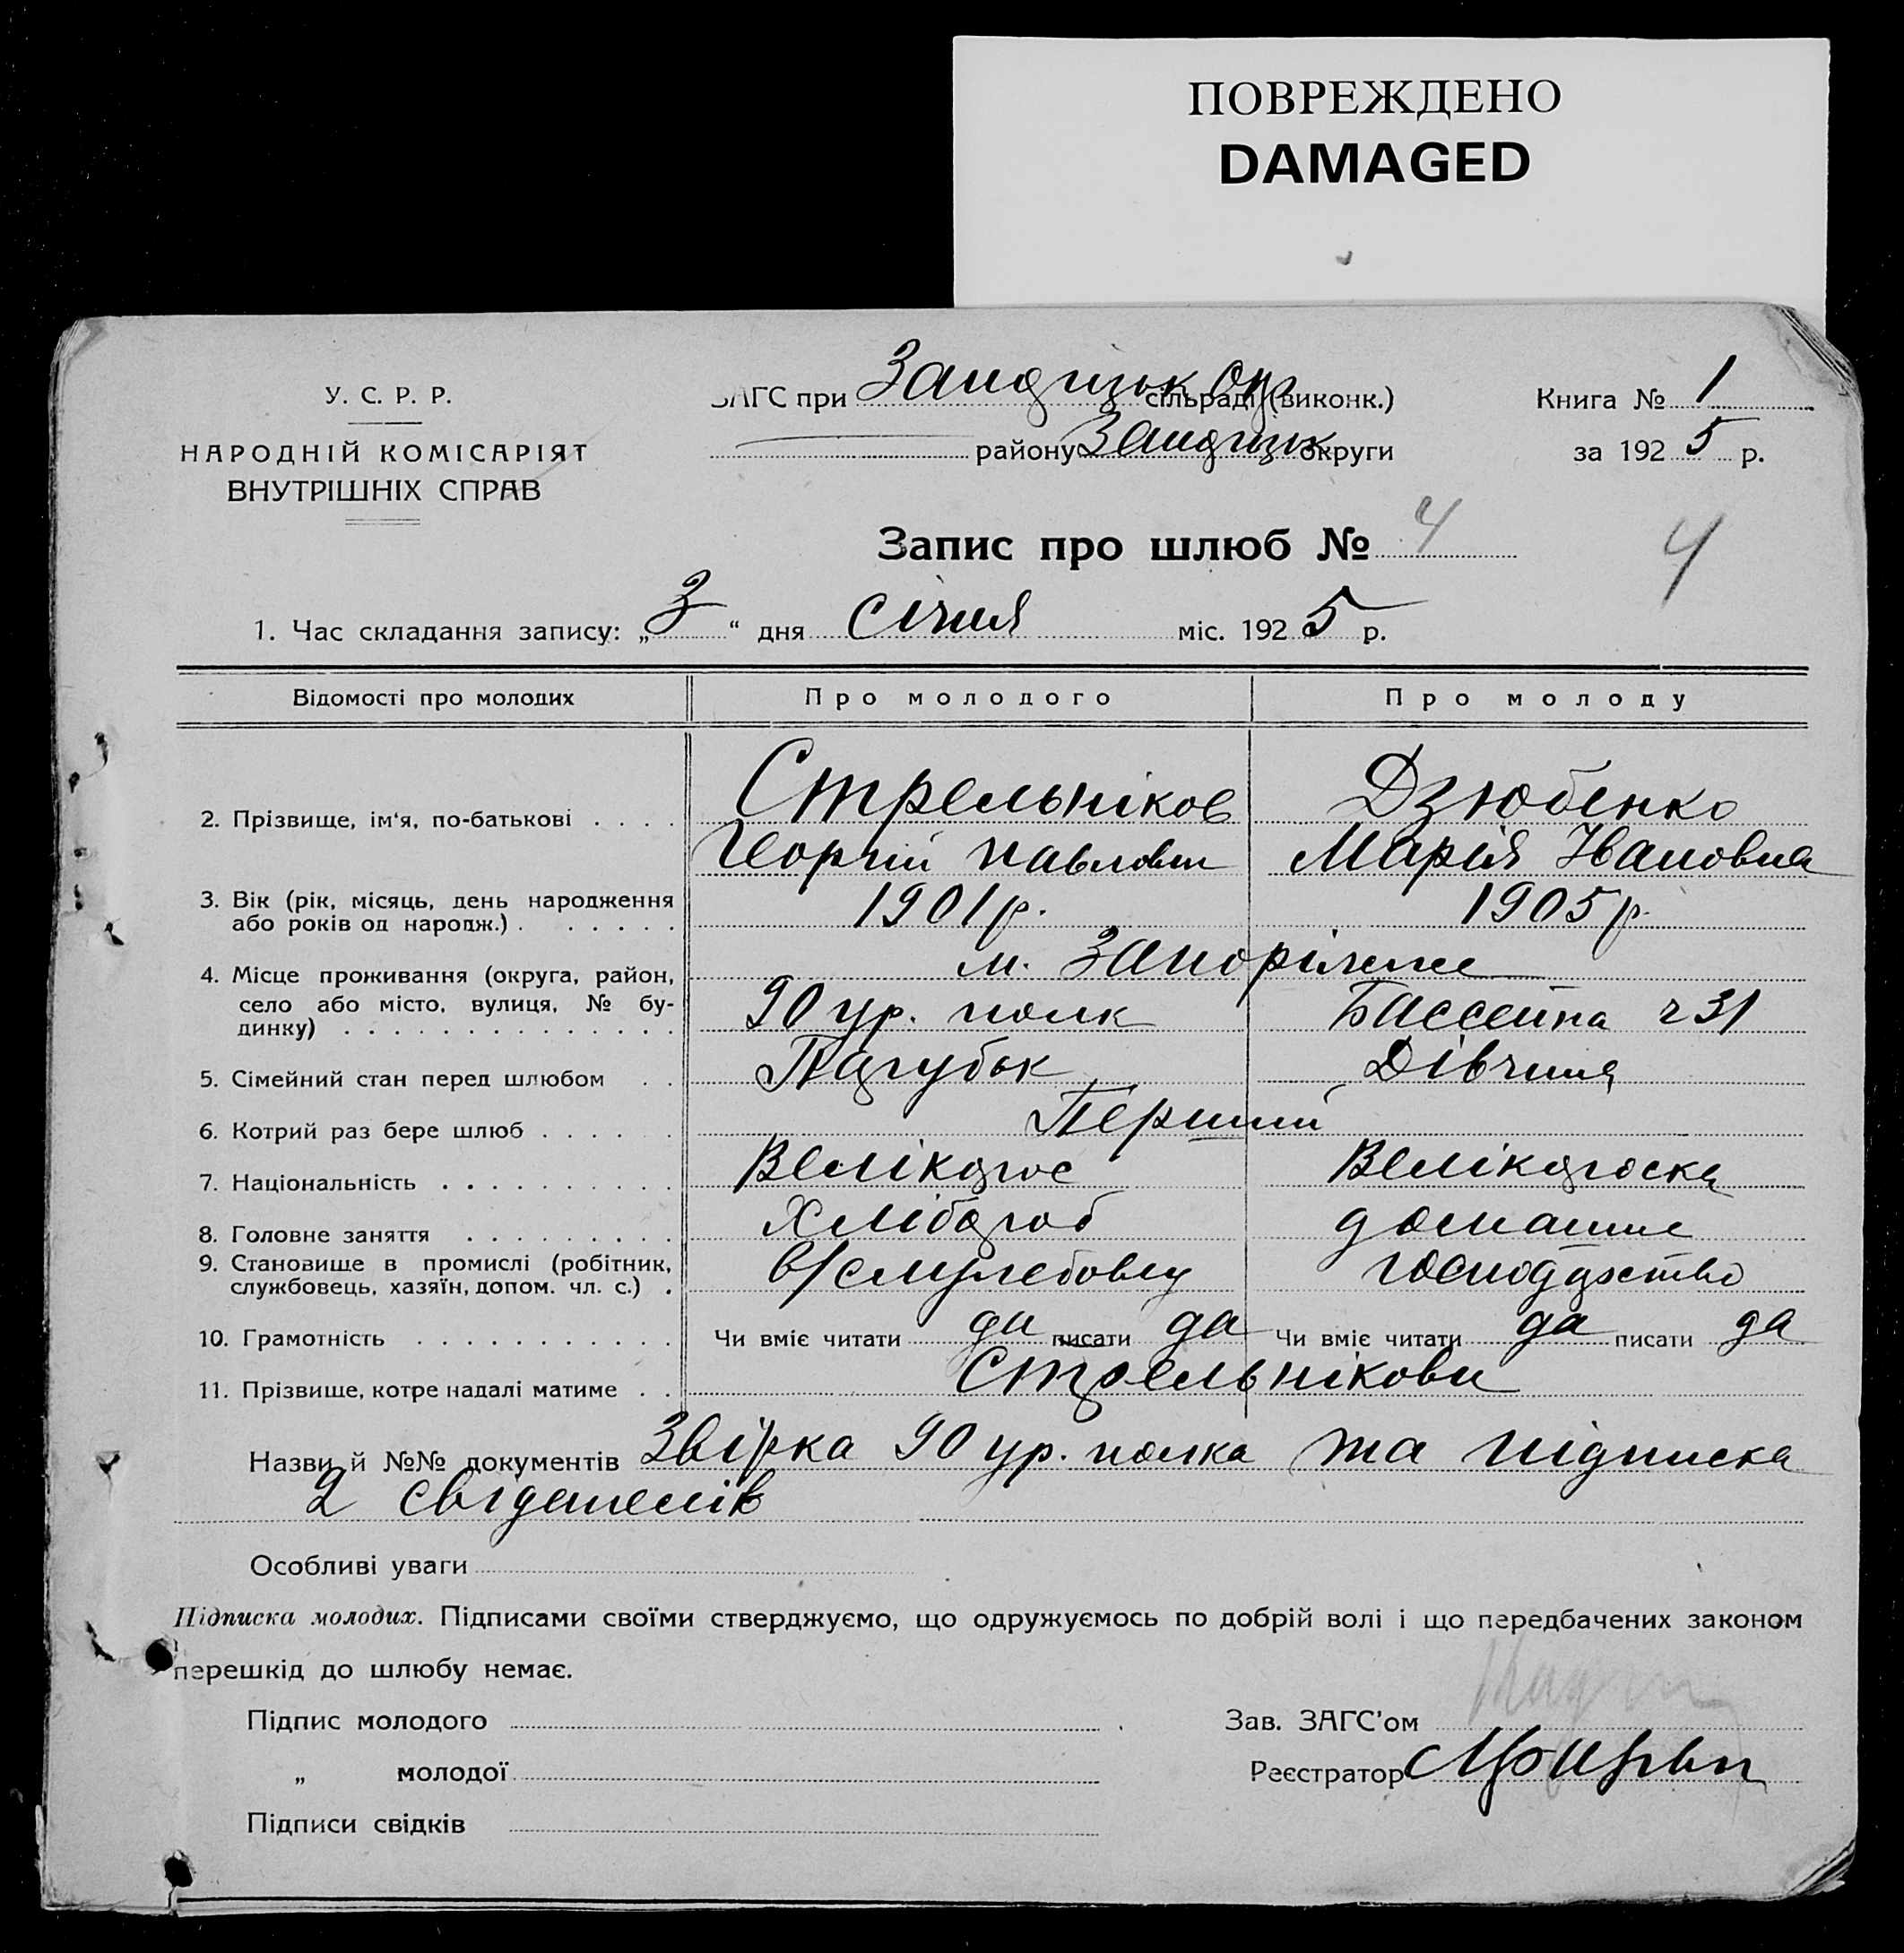 ПОВРЕЖДЕНО
DAMAGED
У. С. Р. Р.
НАРОДНІЙ КОМІСАРІЯТ
ВНУТРІШНІХ СПРАВ
ЗАГС при сільраді (виконк.)
району округи
Книга № 1
за 1925 р.
Запис про шлюб № 4
4
1. Час складання запису: „3“ дня січня міс. 1925 р.
Відомості про молодих
Про молодого
Про молоду
2. Прізвище, ім'я, по-батькові
Стрельніков
Дзюбенко
Георгій Павлович
Марія Івановна
3. Вік (рік, місяць, день народження
або років од народж.)
1901р.
1905р.
4. Місце проживання (округа, район,
село або місто, вулиця, № бу-
динку)
м. Запоріжже
90 ур. полк
Бассейна 31
5. Сімейний стан перед шлюбом
Парубок
Дівчина
6. Котрий раз бере шлюб
Перший
7. Національність
Велікорос
Велікороска
8. Головне заняття
Хлібороб
домашнє
9. Становище в промислі (робітник,
службовець, хазяїн, допом. чл. с.)
в/служебовец
господарство
10. Грамотність
Чи вміє читати да писати да
Чи вміє читати да писати да
11. Прізвище, котре надалі матиме
Стрельнікови
Назви й №№ документів Звірка 90 ур. полка та підписка
2 свідетелів
Особливі уваги
Підписка молодих. Підписами своїми стверджуємо, що одружуємось по добрій волі і що передбачених законом
перешкід до шлюбу немає.
Підпис молодого
„ молодої
Підписи свідків
Зав. ЗАГС'ом
Реєстратор